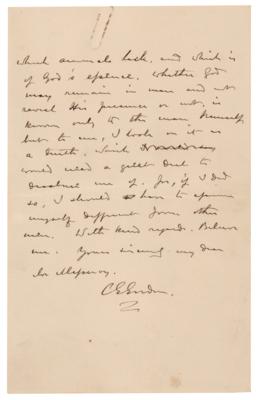 which animals lack, and which is
of God's essence. Whether God
may remain in man and not
reveal His presence or not, is
known only to the man himself,
but to me, I look on it as
a truth, which
would need a great deal to
disabuse me of. for, if I did
so, I should have to esteem
myself different from other
men. With kind regards. Believe
me. Yours sincerely my dear
CEGordon